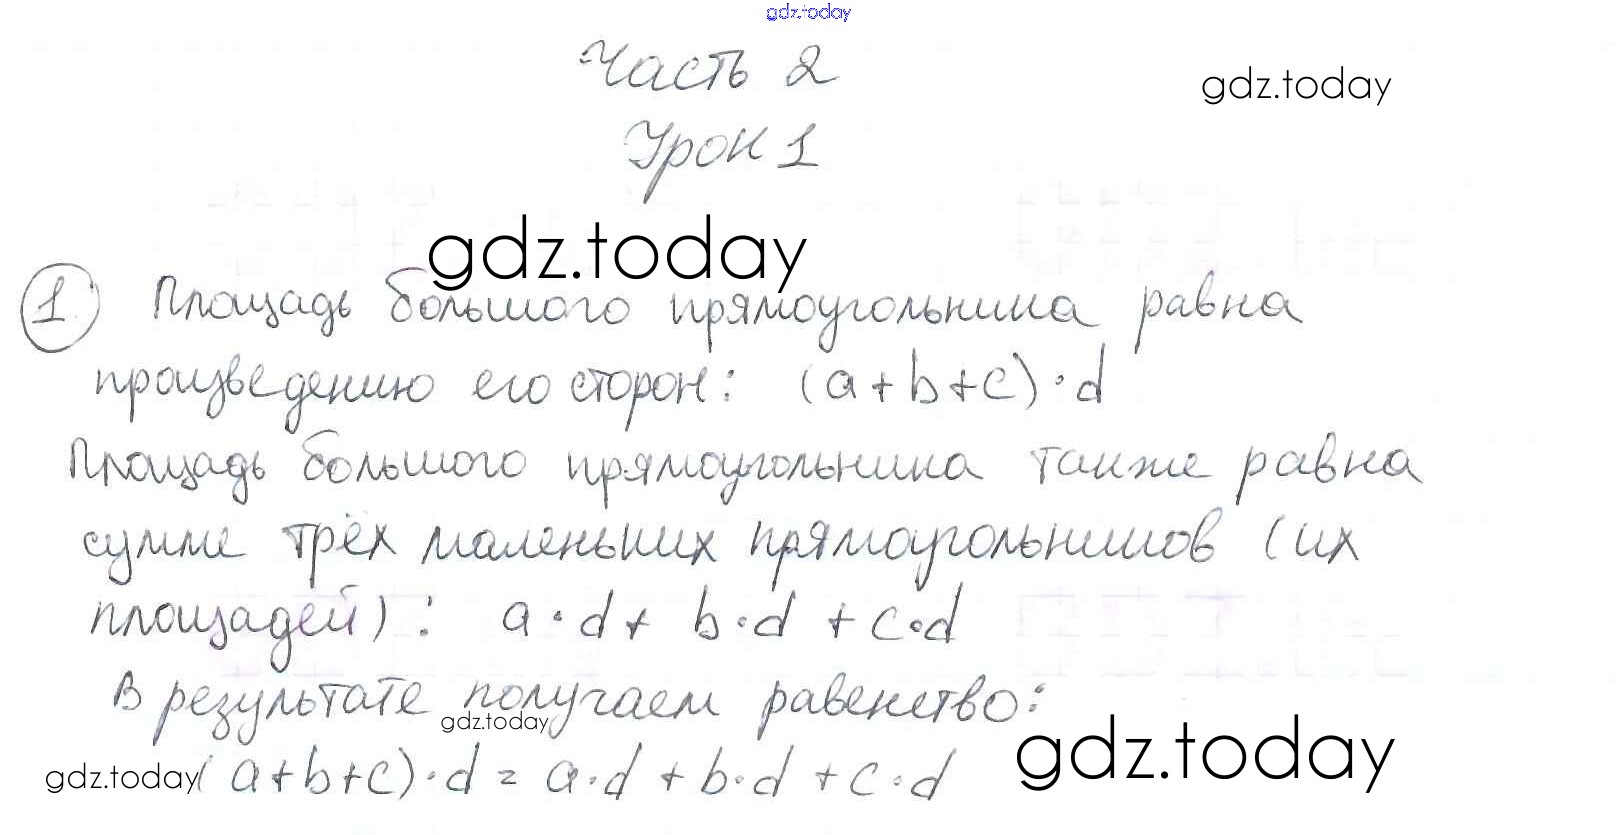 gdz.today
Часть 2
gdz.today
Урок 1
gdz.today
1 Площадь большого прямоугольника равна
произведению его сторон: (a+b+c)·d
Площадь большого прямоугольника также равна
сумме трёх маленьких прямоугольников (их
площадей): a·d+ b·d + c·d
В результате получаем равенство:
gdz.today
gdz.today
gdz.today
(a+b+c)·d = a·d + b·d + c·d